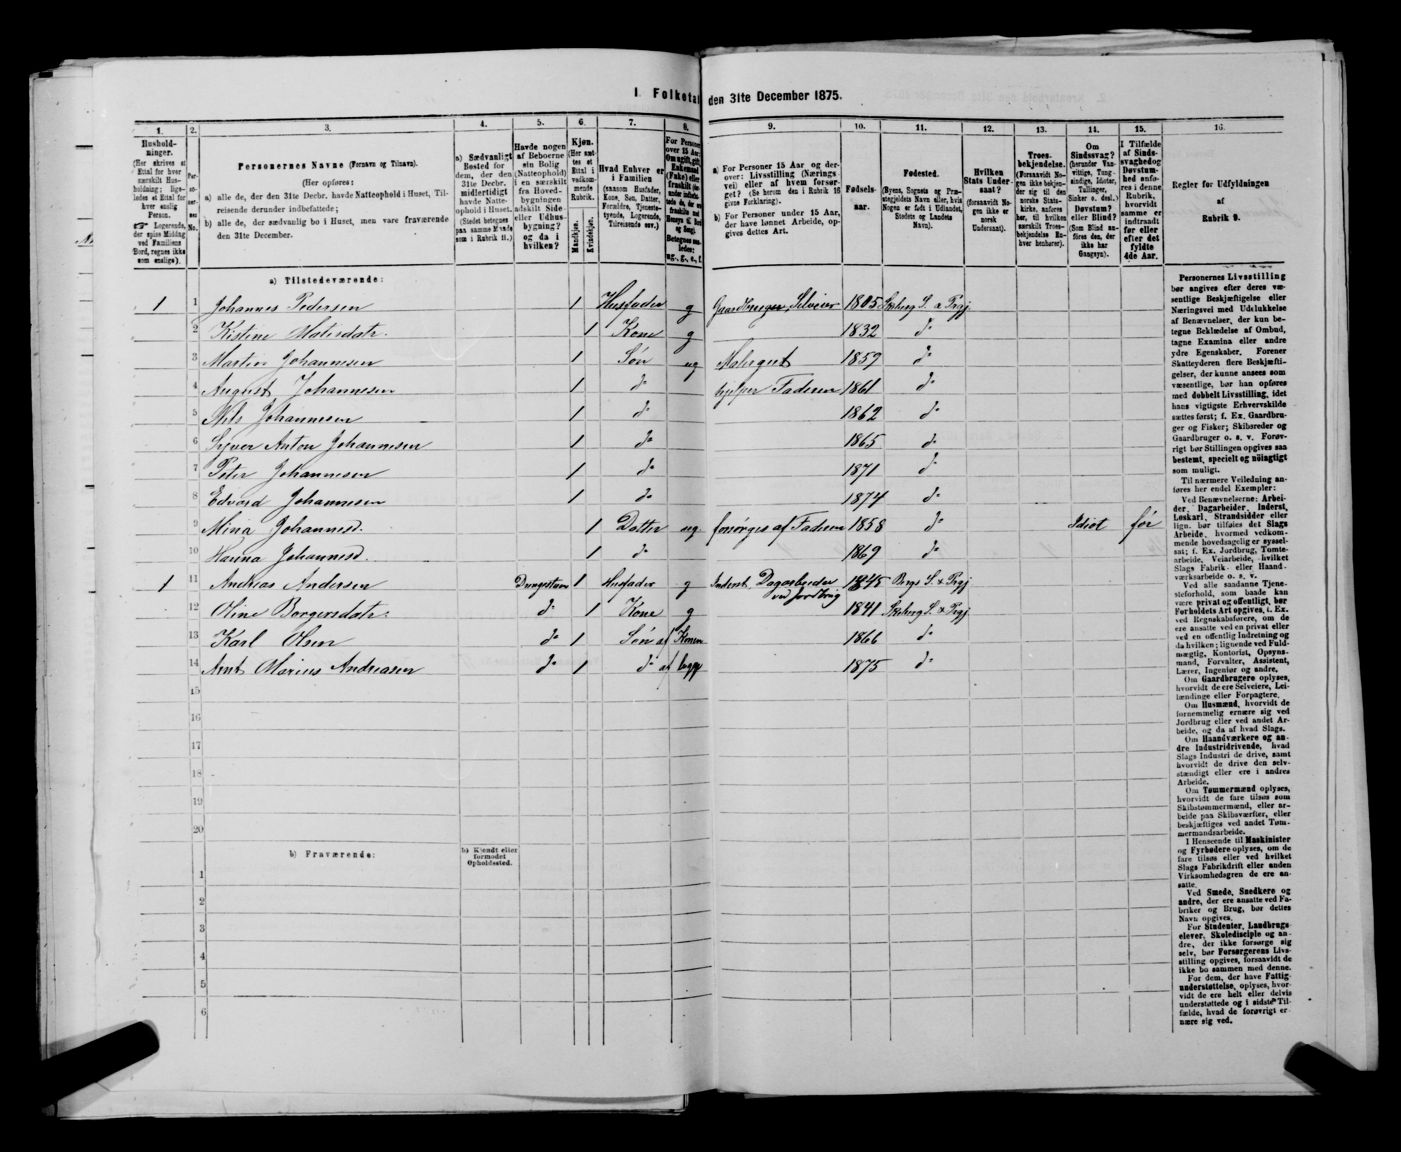 I. Folketal den 31te December 1875.
1. 2. 3. 4. 5. 6. 7. 8. 9. 10. 11. 12. 13. 14. 15. 16.
Personernes Navne (Fornavn og Tilnavn).
(Her opføres:
a) alle de, der den 31te Decbr. havde Natteophold i Huset, Tilreisende derunder indbefattede;
b) alle de, der sædvanlig bo i Huset, men vare fraværende den 31te December.
a) Sædvanligt Bosted for dem, der den 31te Decbr. midlertidigt havde Natteophold i Huset.
Havde nogen af Beboerne sin Bolig (Natteophold) i en særskilt fra Hovedbygningen adskilt Side- eller Udhusbygning? og da i hvilken?
Kjøn.
Mandkjøn. Kvindekjøn.
Hvad Enhver er i Familien
(saasom Husfader, Kone, Søn, Datter, Forældre, Tjenestetyende, Logerende, Tilreisende osv.)
a) For Personer 15 Aar og derover: Livsstilling (Næringsvei) eller af hvem forsørget? (Se herom den i Rubrik 16 givne Forklaring).
b) For Personer under 15 Aar, der have lønnet Arbeide, opgives dettes Art.
Fødselsaar.
Fødested.
Hvilken Stats Undersaat?
(forsaavidt Nogen ikke er norsk Undersaat).
Troesbekjendelse.
Om Sindssvag?
Døvstum? eller Blind?
I Tilfælde af Sindssvaghed og Døvstumhed anføres i denne Rubrik, hvorvidt samme er indtraadt før eller efter det fyldte 4de Aar.
Regler for Udfyldningen af Rubrik 9.
a) Tilstedeværende:
1 1 Johannes Pedersen 1 Husfader g Gaardbruger, Selveier 1805 Skiberg S. & Prgj.
2 Kristine Matisdatr. 1 Kone g 1832 do
3 Martin Johannesen 1 Søn ug Malergut 1859 do
4 August Johannesen 1 do hjelper Faderen 1861 do
5 Nils Johannesen 1 do 1862 do
6 Syver Anton Johannesen 1 do 1865 do
7 Peter Johannesen 1 do 1871 do
8 Edvard Johannesen 1 do 1874 do
9 Mina Johannesd. 1 Datter ug forsørges af Faderen 1858 do Idiot før
10 Hanna Johannesd. 1 do 1869 do
1 11 Andreas Andersen 1 Husfader g Inderst Dagarbeider ved Jordbrug 1848 Bergs S. & Prgj
12 Oline Borgersdatr. do 1 Kone g 1841 Skiberg S. & Prgj
13 Karl Olsen do 1 Søn af Konen 1866 do
14 Arnt Marius Andreasen do 1 do af begge 1875 do
15
16
17
18
19
20
b) Fraværende:
b) Kjendt eller formodet Opholdssted.
1
2
3
4
5
6
Personernes Livsstilling
bør angives efter deres væsentlige Beskjæftigelse eller
Næringsvei med Udelukkelse
af Benævnelser, der kun betegne Beklædelse af Ombud,
tagne Examina eller andre
ydre Egenskaber. Forener
Skatteyderen flere Beskjæftigelser, der kunne ansees som
væsentlige, bør han opføres
med dobbelt Livsstilling, idet
hans vigtigste Erhvervskilde
sættes først; f. Ex. Gaardbruger og Fisker; Skibsreder og
Gaardbruger o. s. v. Forøvrigt bør Stillingen opgives saa
bestemt, specielt og nøiagtigt
som muligt.
Til nærmere Veiledning anføres her endel Exempler:
Ved Benævnelserne: Arbeider, Dagarbeider, Inderst,
Løskarl, Strandsidder eller
lign. bør tilføies det Slags
Arbeide, hvormed vedkommende hovedsagelig er sysselsat; f. Ex. Jordbrug, Tomtearbeide, Veiarbeide, hvilket
Slags Fabrik- eller Haandværksarbeide o. s. v.
Ved alle saadanne Tjenesteforhold, som baade kan
være privat og offentligt, bør
Forholdets Art opgives, f. Ex.
ved Regnskabsførere, om de
ere ansatte ved en privat eller
ved en offentlig Indretning og
da hvilken; lignende ved Fuldmægtig, Kontorist, Opsynsmand, Forvalter, Assistent,
Lærer, Ingeniør og andre.
Om Gaardbrugere oplyses,
hvorvidt de ere Selveiere, Leilændinge eller Forpagtere.
Om Husmænd, hvorvidt de
fornemmelig ernære sig ved
Jordbrug eller ved andet Arbeide, og da af hvad Slags.
Om Haandværkere og andre Industridrivende, hvad
Slags Industri de drive, samt
hvorvidt de drive den selvstændigt eller ere i andres
Arbeide.
Om Tømmermænd oplyses,
hvorvidt de fare tilsøs som
Skibstømmermænd, eller arbeide paa Skibsværfter, eller
beskjæftiges ved andet Tømmermandsarbeide.
I Henseende til Maskinister
og Fyrbødere oplyses, om de
fare tilsøs eller ved hvilket
Slags Fabrikdrift eller anden
Virksomhedsgren de ere ansatte.
Ved Smede, Snedkere og
andre, der ere ansatte ved Fabriker og Brug, bør dettes
Navn opgives.
For Studenter, Landbrugselever, Skoledisciple og andre, der ikke forsørge sig
selv, bør Forsørgerens Livsstilling opgives, forsaavidt de
ikke bo sammen med denne.
For dem, der have Fattigunderstøttelse, oplyses, hvorvidt de ere helt eller delvis
understøttede og i sidste Tilfælde, hvad de forøvrigt ernære sig ved.